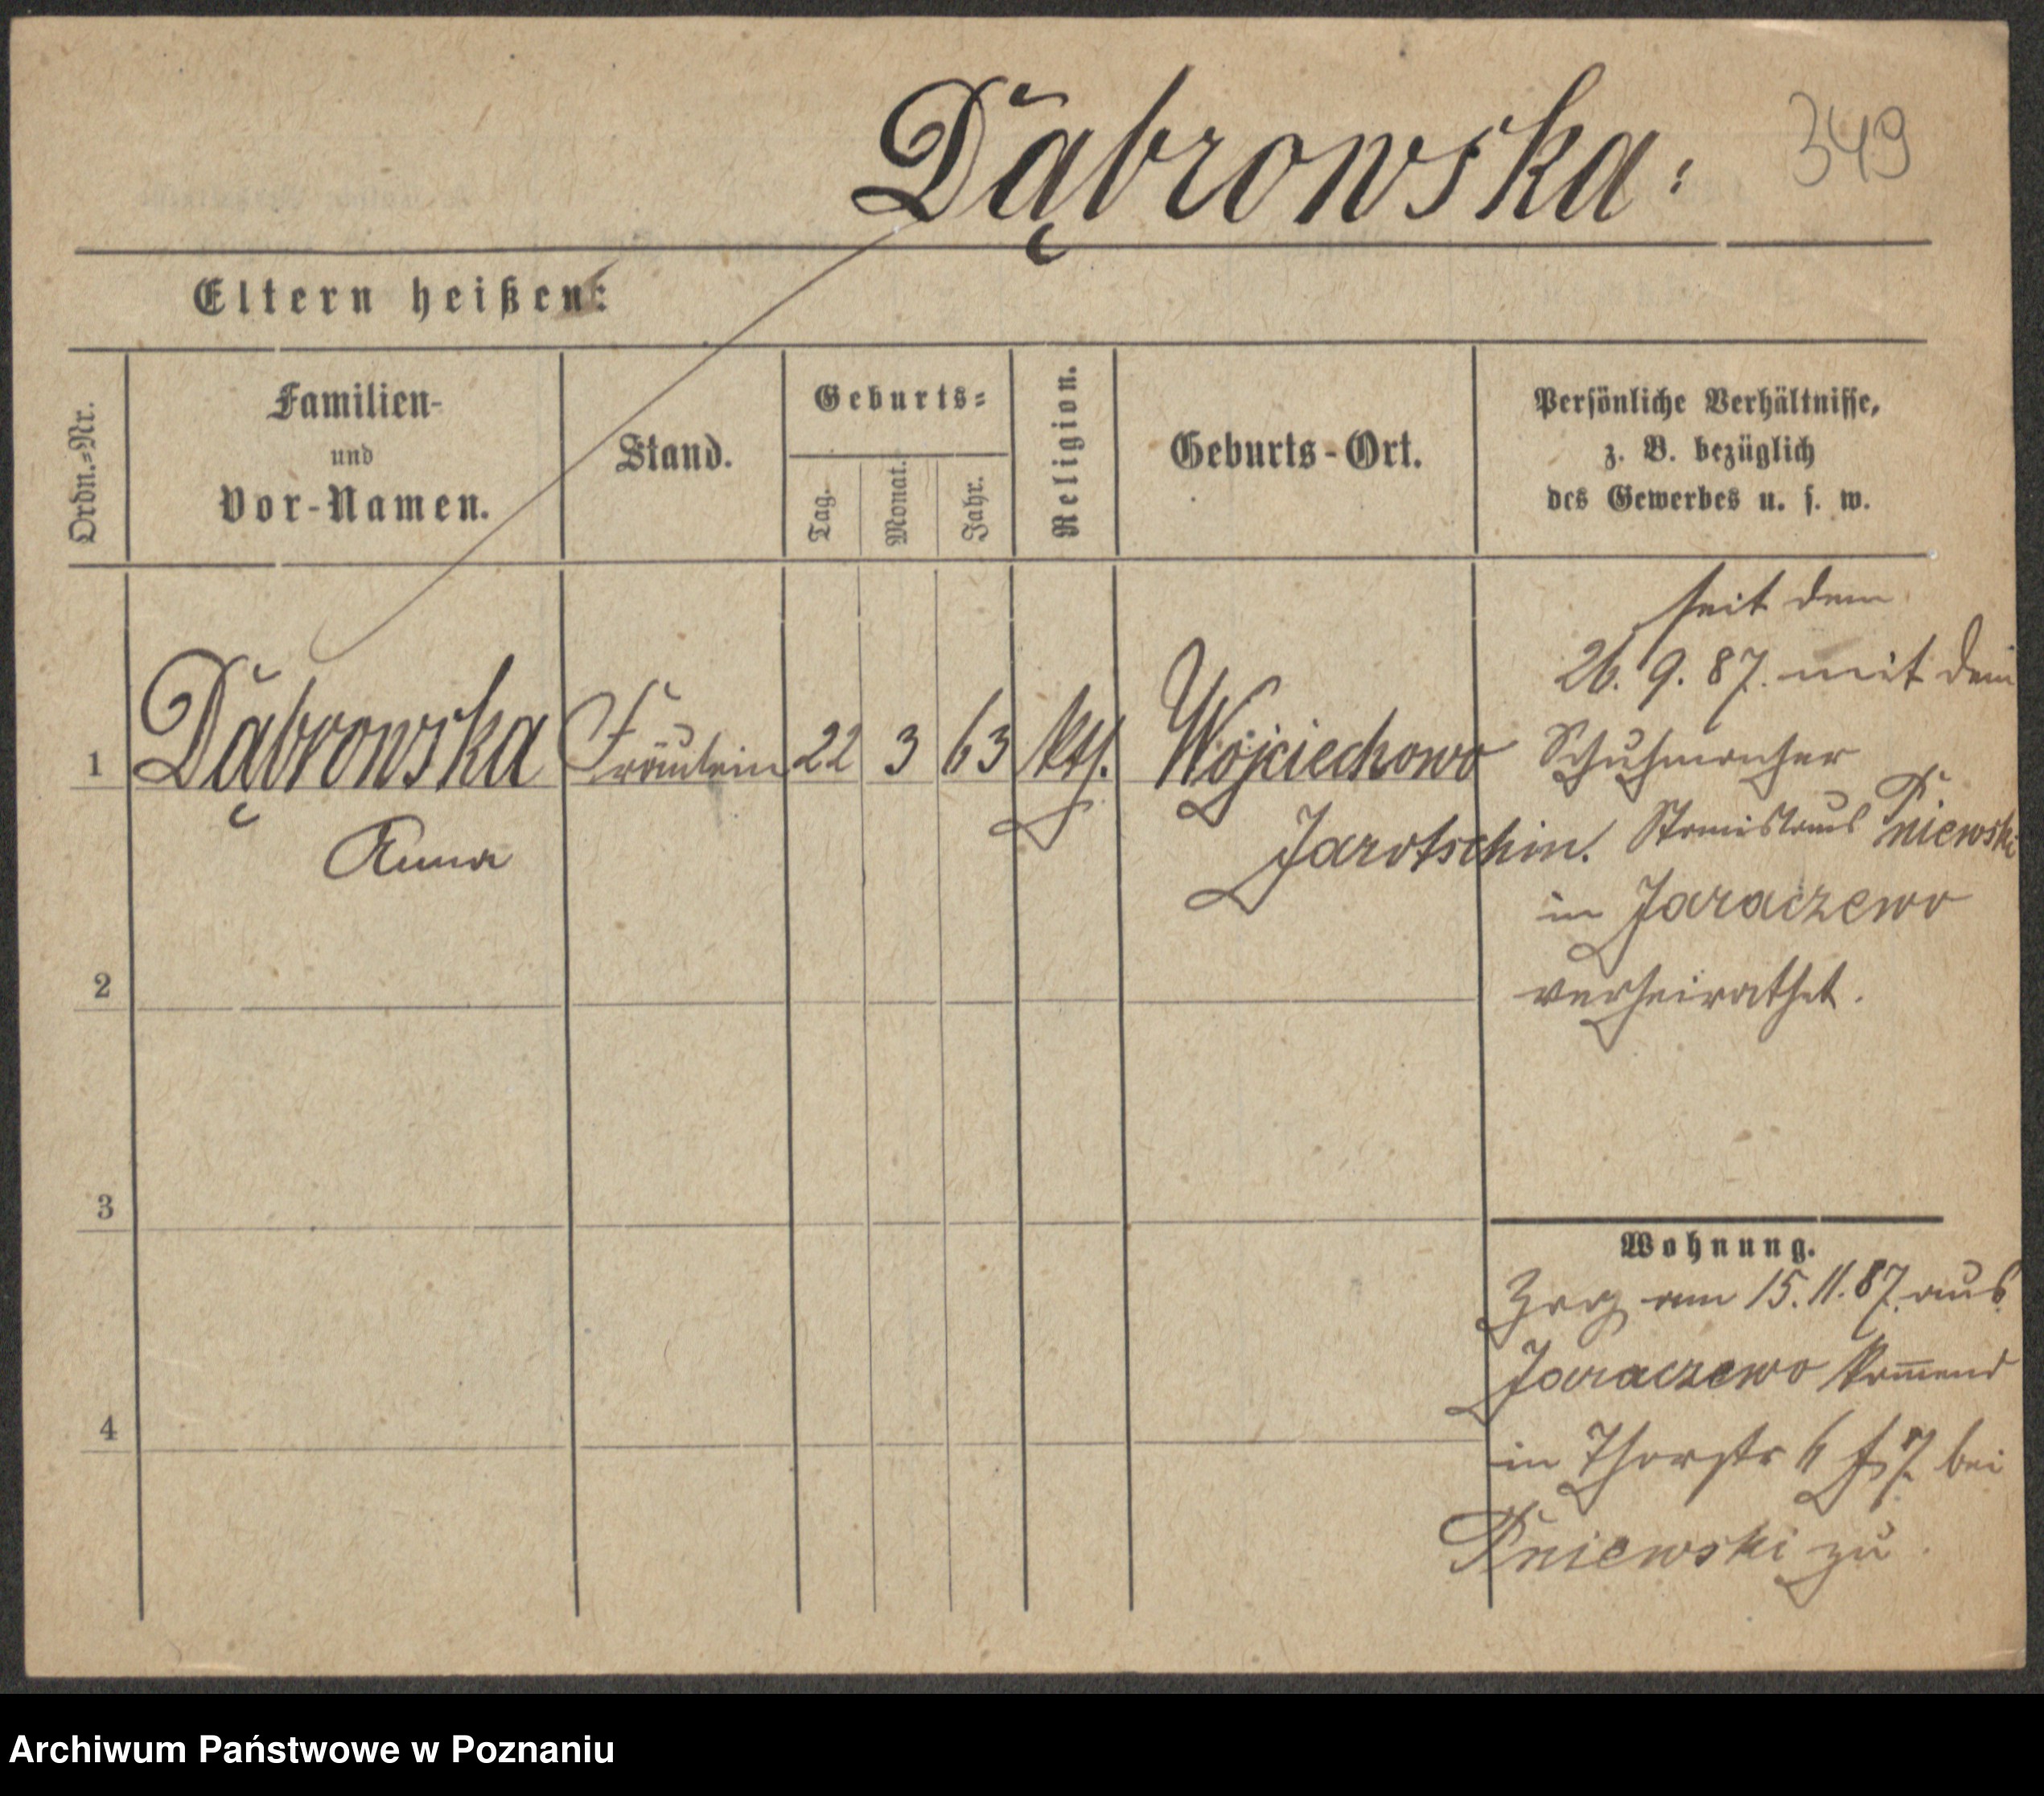 Dąbrowska:
349
Eltern heißen:
Ordn.=Nr.
Familien-
und
Vor-Namen.
Stand.
Geburts=
Tag.
Monat.
Jahr.
Religion.
Geburts-Ort.
Persönliche Verhältnisse,
z. B. bezüglich
des Gewerbes u. s. w.
1
Dąbrowska
Anna
Fräulein
22
3
63
kth.
Wojciechowo
Jarotschin.
seit dem
26. 9. 87. mit dem
Schuhmacher
Stanislaus Pniewski
in Jaraczewo
verheirathet.
2
3
4
Wohnung.
Zog am 15. 11. 87. aus
Jaraczewo kom̅end
in Thorstr 6 bei
Pniewski zu.
Archiwum Państwowe w Poznaniu